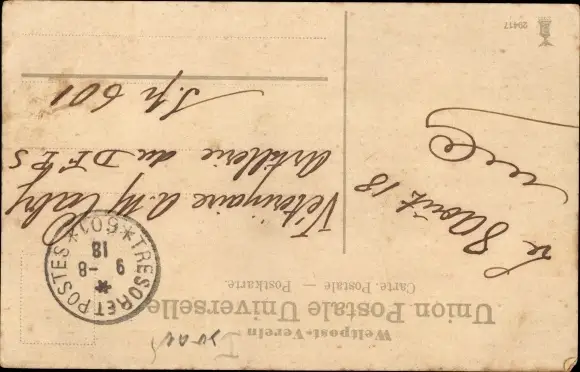 Weltpost-Verein
Union Postale Universelle
Carte Postale — Postkarte.
le 8 août 18
Vétérinaire
Artillerie du D
S.p 601
TRESOR ET POSTES
* 601 *
9 -8
18
29417